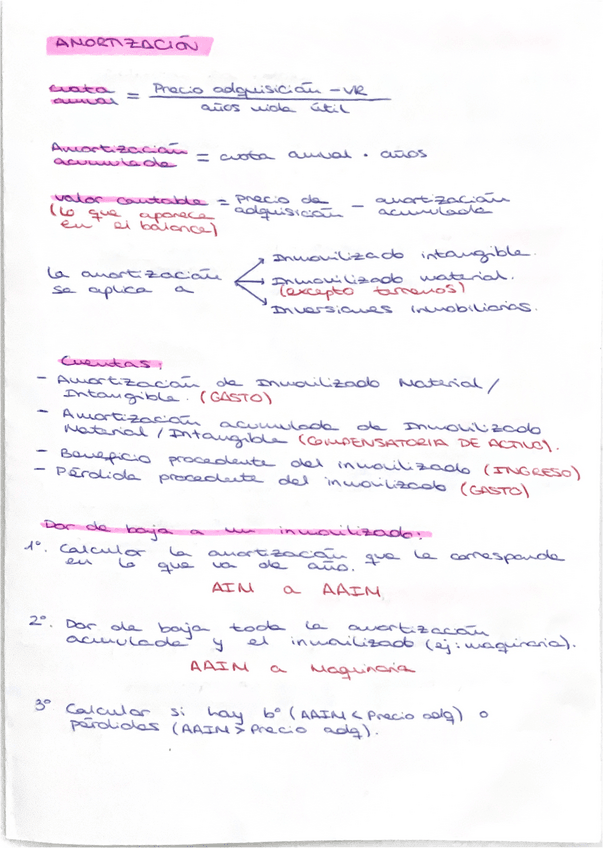 AMORTIZACIÓN
cuota anual = Precio adquisición - VR / años vida útil
Amortización acumulada = cuota anual · años
valor contable = precio de adquisición - amortización acumulada
(lo que aparece en el balance)
La amortización se aplica a
Inmovilizado intangible.
Inmovilizado material.
(excepto terrenos)
Inversiones inmobiliarias.
Cuentas:
- Amortización de Inmovilizado Material /
Intangible. (GASTO)
- Amortización acumulada de Inmovilizado
Material / Intangible (COMPENSATORIA DE ACTIVO).
- Beneficio procedente del inmovilizado (INGRESO)
- Pérdida procedente del inmovilizado (GASTO)
Dar de baja a un inmovilizado:
1º. Calcular la amortización que le corresponde
en lo que va de año.
AIM a AAIM
2º. Dar de baja toda la amortización
acumulada y el inmovilizado (ej: maquinaria).
AAIM a Maquinaria
3º Calcular si hay bº (AAIM < Precio adq) o
pérdidas (AAIM > Precio adq).